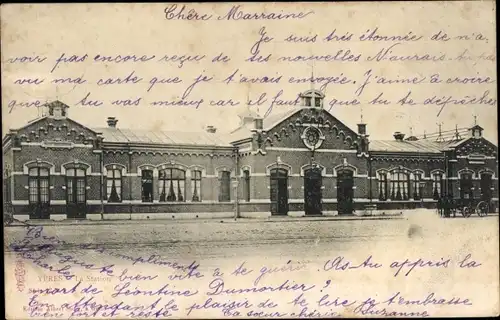 Chère Marraine
Je suis très étonnée de n'a
voir pas encore reçu de tes nouvelles N'aurais tu pas
vu ma carte que je t'avais envoyée. J'aime à croire
que tu vas mieux car il faut que tu te dépêches
Bons compliments
à Charles
bien vite à te guérir. As-tu appris la
mort de Léontine Dumortier?
En attendant le plaisir de te lire je t'embrasse
bien fort et reste Ta sœur chérie Suzanne
YPRES La Station